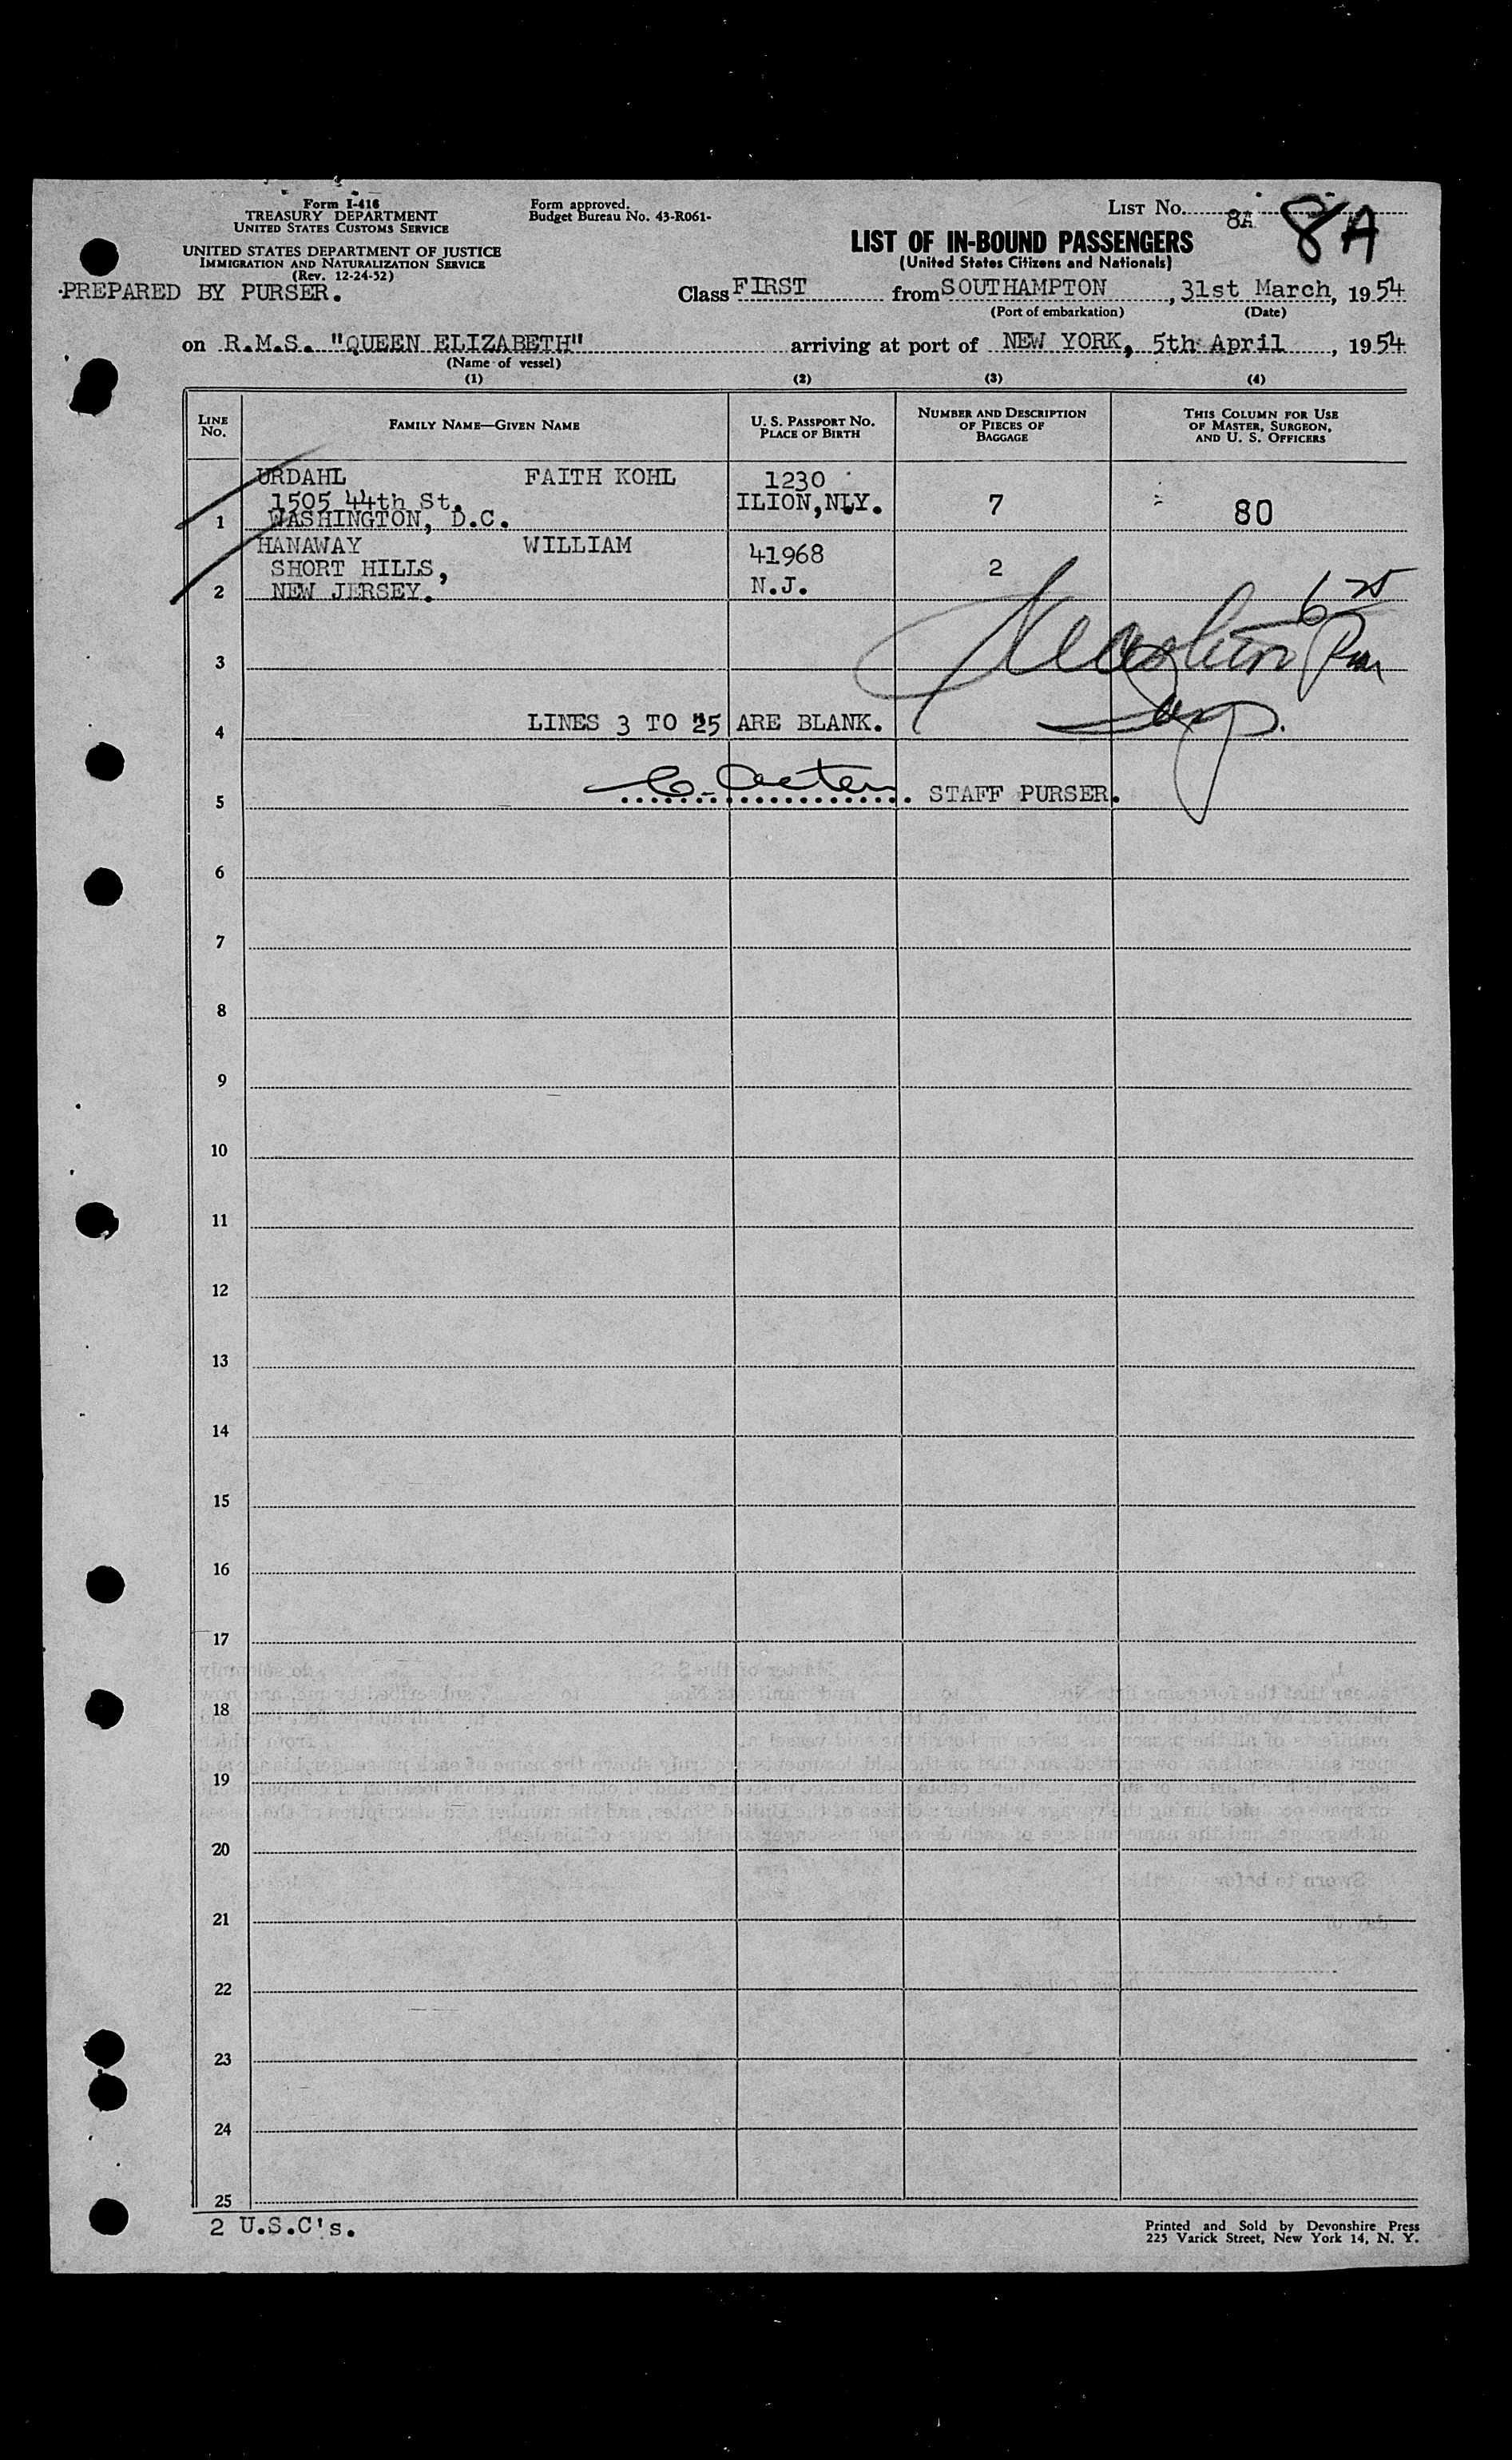 Form I-416
TREASURY DEPARTMENT
UNITED STATES CUSTOMS SERVICE
UNITED STATES DEPARTMENT OF JUSTICE
IMMIGRATION AND NATURALIZATION SERVICE
(Rev. 12-24-52)
PREPARED BY PURSER.
Form approved.
Budget Bureau No. 43-R061-
LIST No. 8A 8A
LIST OF IN-BOUND PASSENGERS
(United States Citizens and Nationals)
Class FIRST from SOUTHAMPTON, 31st March, 1954
(Port of embarkation) (Date)
on R.M.S. "QUEEN ELIZABETH" arriving at port of NEW YORK, 5th April, 1954
(Name of vessel)
(1) (2) (3) (4)
LINE No. FAMILY NAME—GIVEN NAME U. S. PASSPORT NO. PLACE OF BIRTH NUMBER AND DESCRIPTION OF PIECES OF BAGGAGE THIS COLUMN FOR USE OF MASTER, SURGEON, AND U. S. OFFICERS
URDAHL FAITH KOHL 1230
1505 44th St. ILION, N.Y. 7 80
1 WASHINGTON, D.C.
HANAWAY WILLIAM 41968
SHORT HILLS, 2
2 NEW JERSEY. N.J.
3
LINES 3 TO 25 ARE BLANK.
4
5 STAFF PURSER.
6
7
8
9
10
11
12
13
14
15
16
17
18
19
20
21
22
23
24
25
2 U.S.C's.
Printed and Sold by Devonshire Press
225 Varick Street, New York 14, N. Y.